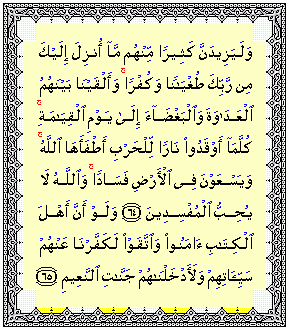 وَلَيَزِيدَنَّ كَثِيرًا مِّنْهُم مَّآ أُنزِلَ إِلَيْكَ
مِن رَّبِّكَ طُغْيَٰنًا وَكُفْرًا ۚ وَأَلْقَيْنَا بَيْنَهُمُ
ٱلْعَدَٰوَةَ وَٱلْبَغْضَآءَ إِلَىٰ يَوْمِ ٱلْقِيَٰمَةِ ۚ
كُلَّمَآ أَوْقَدُوا۟ نَارًا لِّلْحَرْبِ أَطْفَأَهَا ٱللَّهُ ۚ
وَيَسْعَوْنَ فِى ٱلْأَرْضِ فَسَادًا ۚ وَٱللَّهُ لَا
يُحِبُّ ٱلْمُفْسِدِينَ ﴿٦٤﴾ وَلَوْ أَنَّ أَهْلَ
ٱلْكِتَٰبِ ءَامَنُوا۟ وَٱتَّقَوْا۟ لَكَفَّرْنَا عَنْهُمْ
سَيِّـَٔاتِهِمْ وَلَأَدْخَلْنَٰهُمْ جَنَّٰتِ ٱلنَّعِيمِ ﴿٦٥﴾